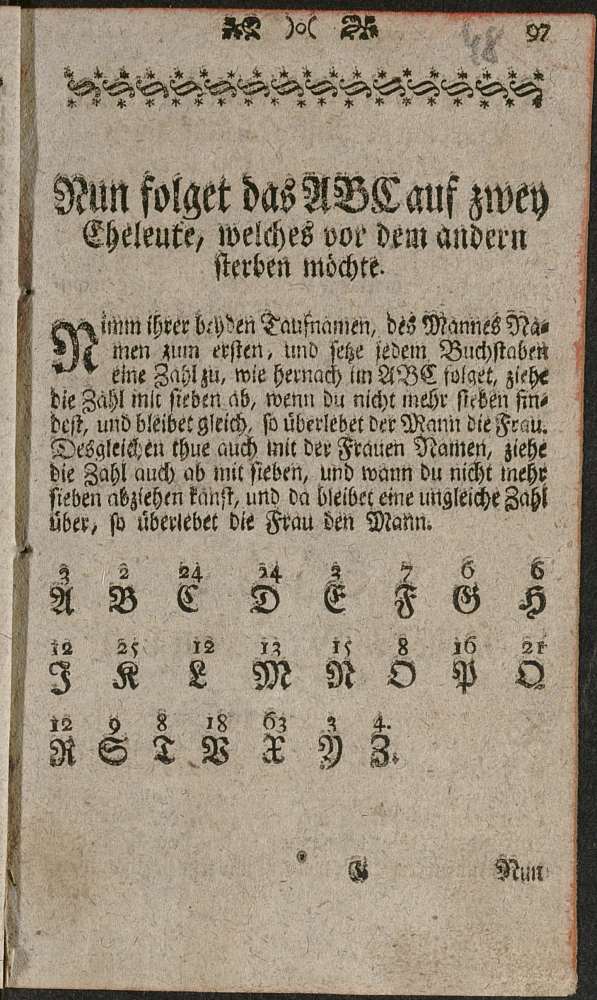 )o(
97
48
Nun folget das ABC auf zwey
Eheleute, welches vor dem andern
sterben möchte.
Nimm ihrer beyden Taufnamen, des Mannes Na-
men zum ersten, und setze jedem Buchstaben
eine Zahl zu, wie hernach im ABC folget, ziehe
die Zahl mit sieben ab, wenn du nicht mehr sieben fin-
dest, und bleibet gleich, so überlebet der Mann die Frau.
Desgleichen thue auch mit der Frauen Namen, ziehe
die Zahl auch ab mit sieben, und wann du nicht mehr
sieben abziehen kanst, und da bleibet eine ungleiche Zahl
über, so überlebet die Frau den Mann.
3 2 24 24 3 7 6 6
A B C D E F G H
12 25 12 13 15 8 16 21
J K L M N O P Q
12 9 8 18 63 3 4.
R S T V X Y Z.
G Nun